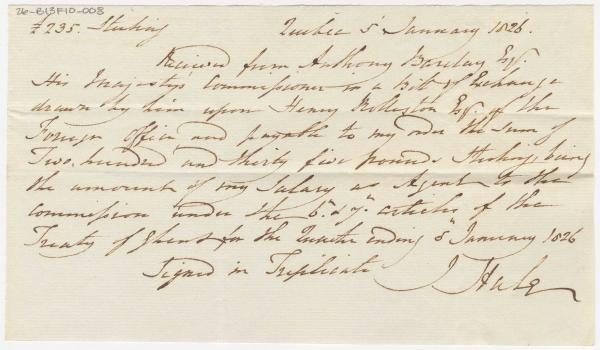 26-B13F10-008
£235. Sterling Quebec 5th January 1826.
Received from Anthony Barclay Esq.
His Majesty's Commissioner in a Bill of Exchange
drawn by him upon Henry Rolleston Esq. of the
Foreign Office and payable to my order the sum of
Two hundred and thirty five pounds Sterling, being
the amount of my Salary as Agent to the
Commission under the 6th & 7th articles of the
Treaty of Ghent for the Quarter ending 5th January 1826
Signed in Triplicate J Hale